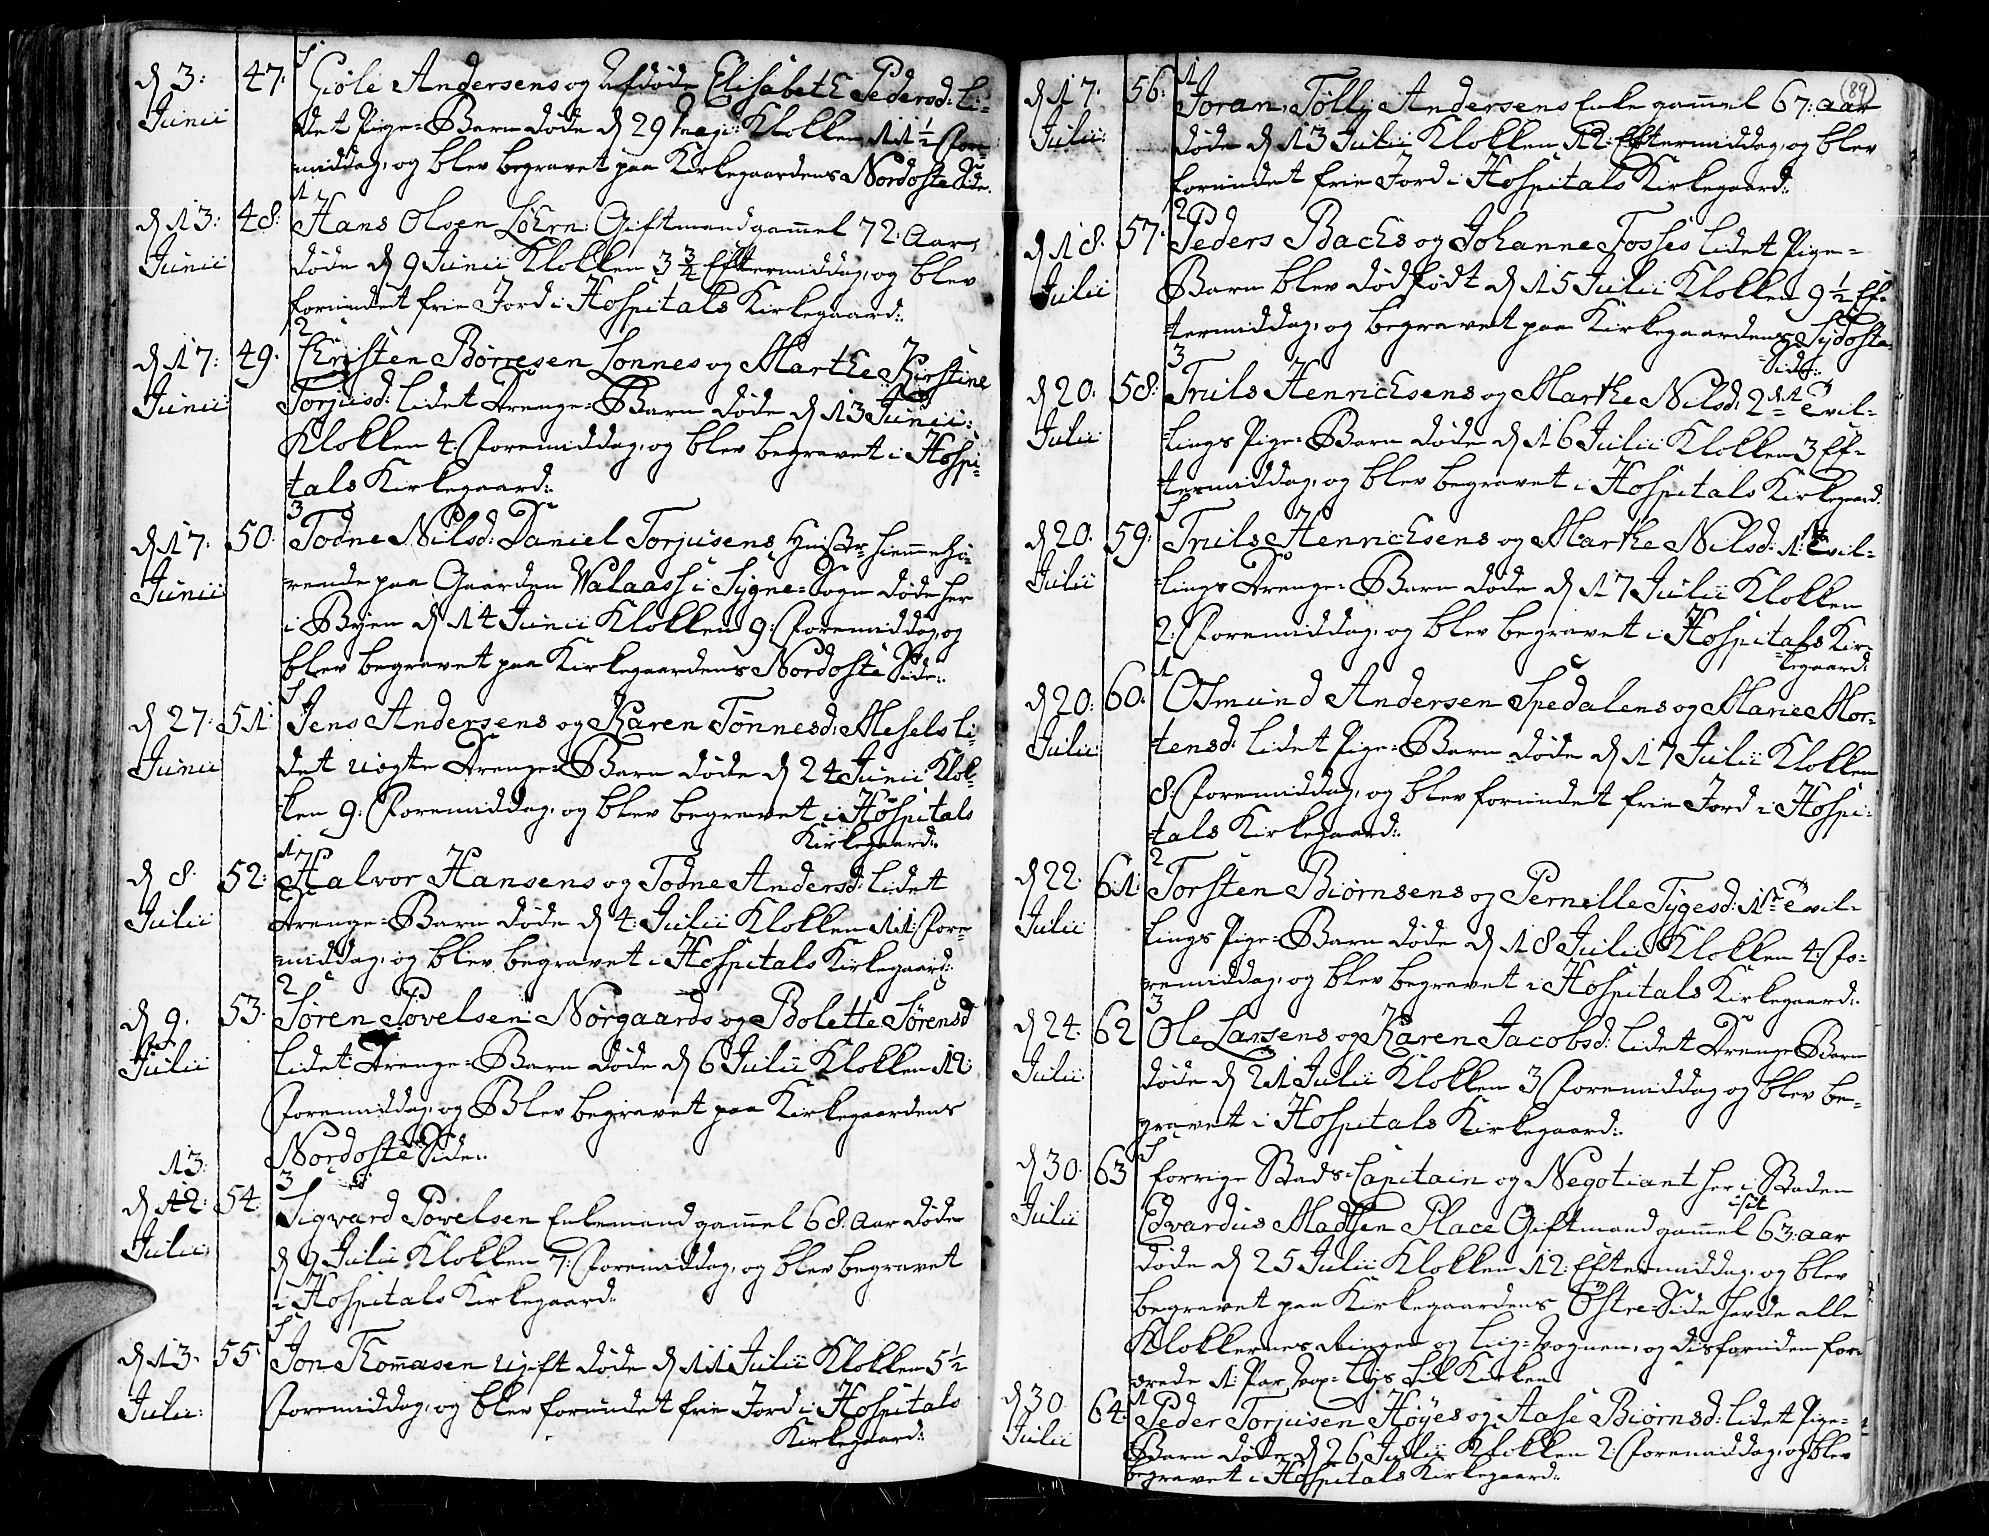 d 3: Junii 47. Giöli Andersens og afdøde Elisabeth Pedersd: li-
det Pige-Barn døde d 29 Maji: Klokken 11½ For-
middag, og blev begravet paa Kirkegaardens Nordoste Side.
d 13: Junii 48: Hans Olsen Löhrn: Giftmand gam̄el 72: Aar,
døde d 9 Junii Klokken 3¾ Eftermiddag, og blev
forundet frie Jord i Hospitals Kirkegaard:.
d 17: Junii 49. Christen Börresen Lonnes og Marthe Kirstine
Torjusd: lidet Drenge-Barn døde d 13 Junii:
Klokken 4. Foremiddag, og blev begravet i Hospi-
tals Kirkegaard:.
d 17. Junii 50. Todne Nilsd: Daniel Torjusens Hustr: hiemmehö-
rende paa Gaarden Valaass i Sygne-Sogn døde her
i Byen d 14 Junii Klokken 9: Foremiddag, og
blev begravet paa Kirkegaardens Nordoste Side:.
d 27. Junii 51: Jens Andersens og Karen Tönnesd: Mesels li-
det uægte Drenge-Barn døde d 24 Junii Klok-
ken 9: Foremiddag, og blev begravet i Hospitals
Kirkegaard:.
d 8. Julii 52: Halvor Hansens og Todne Andersd: lidet
Drenge-Barn døde d 4. Julii Klokken 11: Fore-
middag, og blev begravet i Hospitals Kirkegaard:.
d 9. Julii 53. Sören Povelsen Nörgaards og Bolette Sörensd
lidet Drenge-Barn døde d 6 Julii Klokken 12:
Foremiddag, og Blev begravet paa Kirkegaardens
Nordoste Side:.
13:
d 12: Julii 54. Sigvard Povelsen Enkemand gam̄el 68. Aar døde
d 9 Julii Klokken 7: Foremiddag, og blev begravet
i Hospitals Kirkegaard:.
d 13. Julii: 55. Jon Thom̄asen ugift døde d 11 Julii Klokken 5½
Foremiddag, og blev forundet frie Jord i Hospitals
Kirkegaard:.
89
d 17. Julii: 56. Joran, Tölly Andersens Enke gam̄el 67: Aar
døde d 13 Julii Klokken 12: Eftermiddag, og blev
forundet frie Jord i Hospitals Kirkegaard:.
d 18. Julii 57. Peders Bachs og Johanne Fosses lidet Pige-
Barn blev dødfødt d 15 Julii Klokken 9½ Ef-
termiddag, og begravet paa Kirkegaardens Sydoste-
Side:.
d 20. Julii 58. Truls Henrichsens og Marthe Nilsd: 2den Tvil-
lings Pige-Barn døde d 16 Julii Klokken 3 Ef-
termiddag, og blev begravet i Hospitals Kirkegaard.
d 20. Julii 59. Truls Henrichsens og Marthe Nilsd: 1te Tvil-
lings Drenge-Barn døde d 17 Julii Klokken
2: Foremiddag, og blev begravet i Hospitals Kir-
kegaard:
d 20. Julii 60. Osmund Andersen Spedalens og Marie Mor-
tensd: lidet Pige-Barn døde d 17 Julii Klokken
8: Foremiddag, og blev forundet frie Jord i Hospi-
tals Kirkegaard:.
d 22. Julii 61: Torsten Biörnsens og Pernille Tygesd: 1te Tvil-
lings Pige-Barn døde d 18 Julii Klokken 4: Fo-
remiddag, og blev begravet i Hospitals Kirkegaard:.
d 24. Julii 62 Ole Larsens og Karen Jacobsd: lidet Drenge Barn
døde d 21 Julii Klokken 3 Foremiddag og blev be-
gravet i Hospitals Kirkegaard:.
d 30. Julii 63 forrige Stads-Capitain og Negotiant her i Staden
Edvardus Madtsen Place Giftmand gam̄el 63: Aar
døde d 25 Julii Klokken 12: Eftermiddag, og blev
begravet paa Kirkegaardens Östre-Side havde alle
Klokkernes Ringen og Liig-Vognen, og desforuden for-
ærede 1. Par Vox-Liys til Kirken
d 30 Julii 64. Peder Torjusen Höyes og Aase Biörnsd: lidet Pige-
Barn døde d 26 Julii Klokken 2: Foremiddag, og blev
begravet i Hospitals Kirkegaard:.